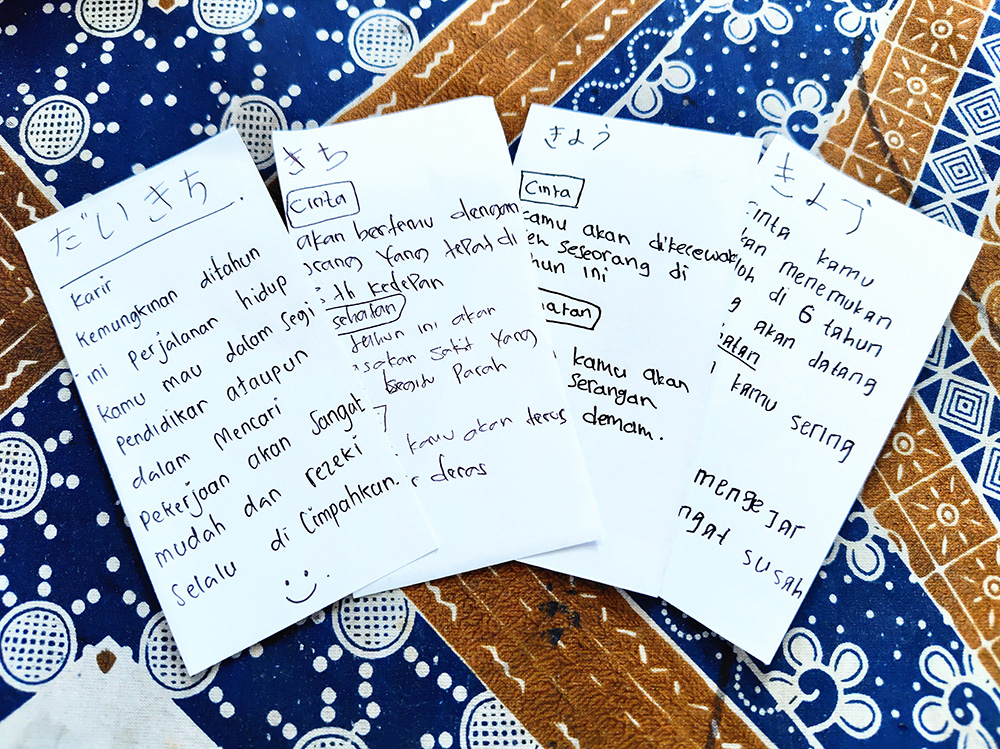 だいきち
Karir
Kemungkinan ditahun
ini perjalanan hidup
kamu mau dalam segi
Pendidikan ataupun
dalam mencari
Pekerjaan akan sangat
mudah dan rezeki
Selalu di Cimpahkan.
きち
Cinta
akan bertemu dengan
orang Yang tepat di
th kedepan
sehatan
tahun ini akan
sakan sakit Yang
begitu Parah
kamu akan terus
deras
きよう
Cinta
kamu akan dikecewak
eh seseorang di
hun ini
hatan
kamu akan
serangan
demam.
きよう
inta kamu
kan menemukan
loh di 6 tahun
g akan datang
hatan
kamu sering
mengejar
ngat susah